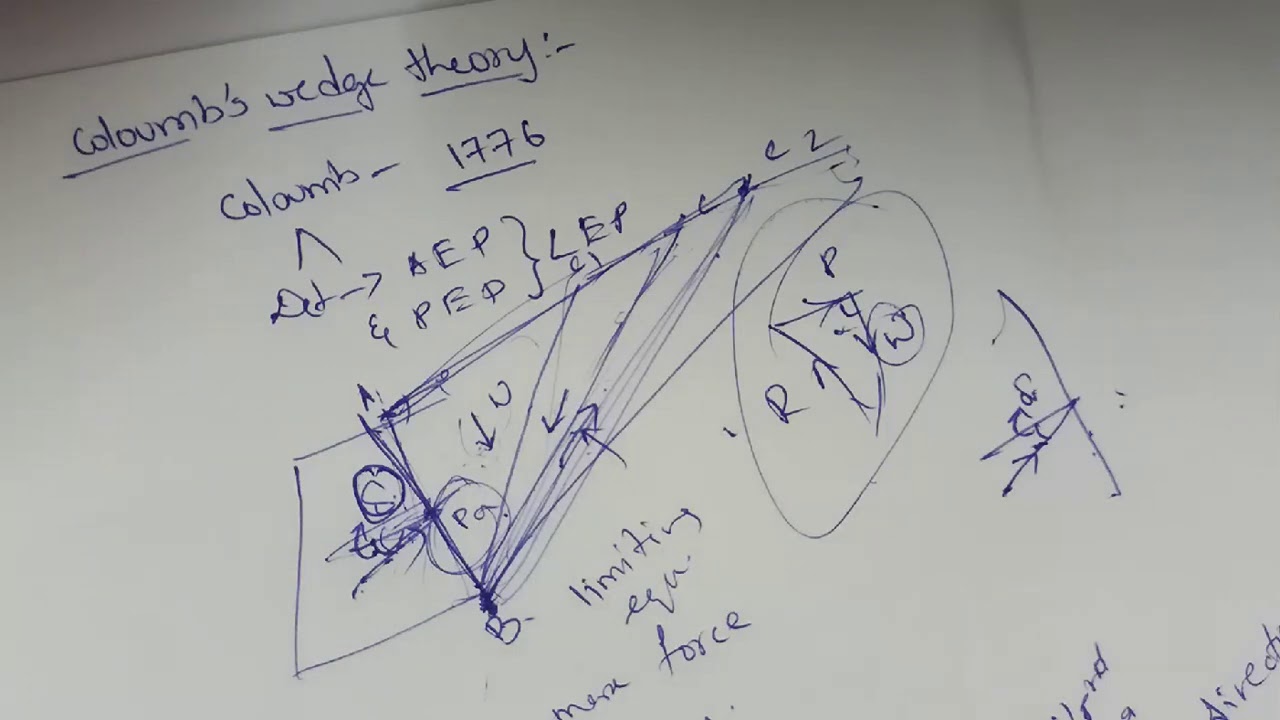 Coloumb's wedge theory:-
Coloumb - 1776
Det → AEP
& PEP } LEP
C1
C
C2
A
W
P
W
R
δ
Pa
B
limiting
equ.
max force
direct